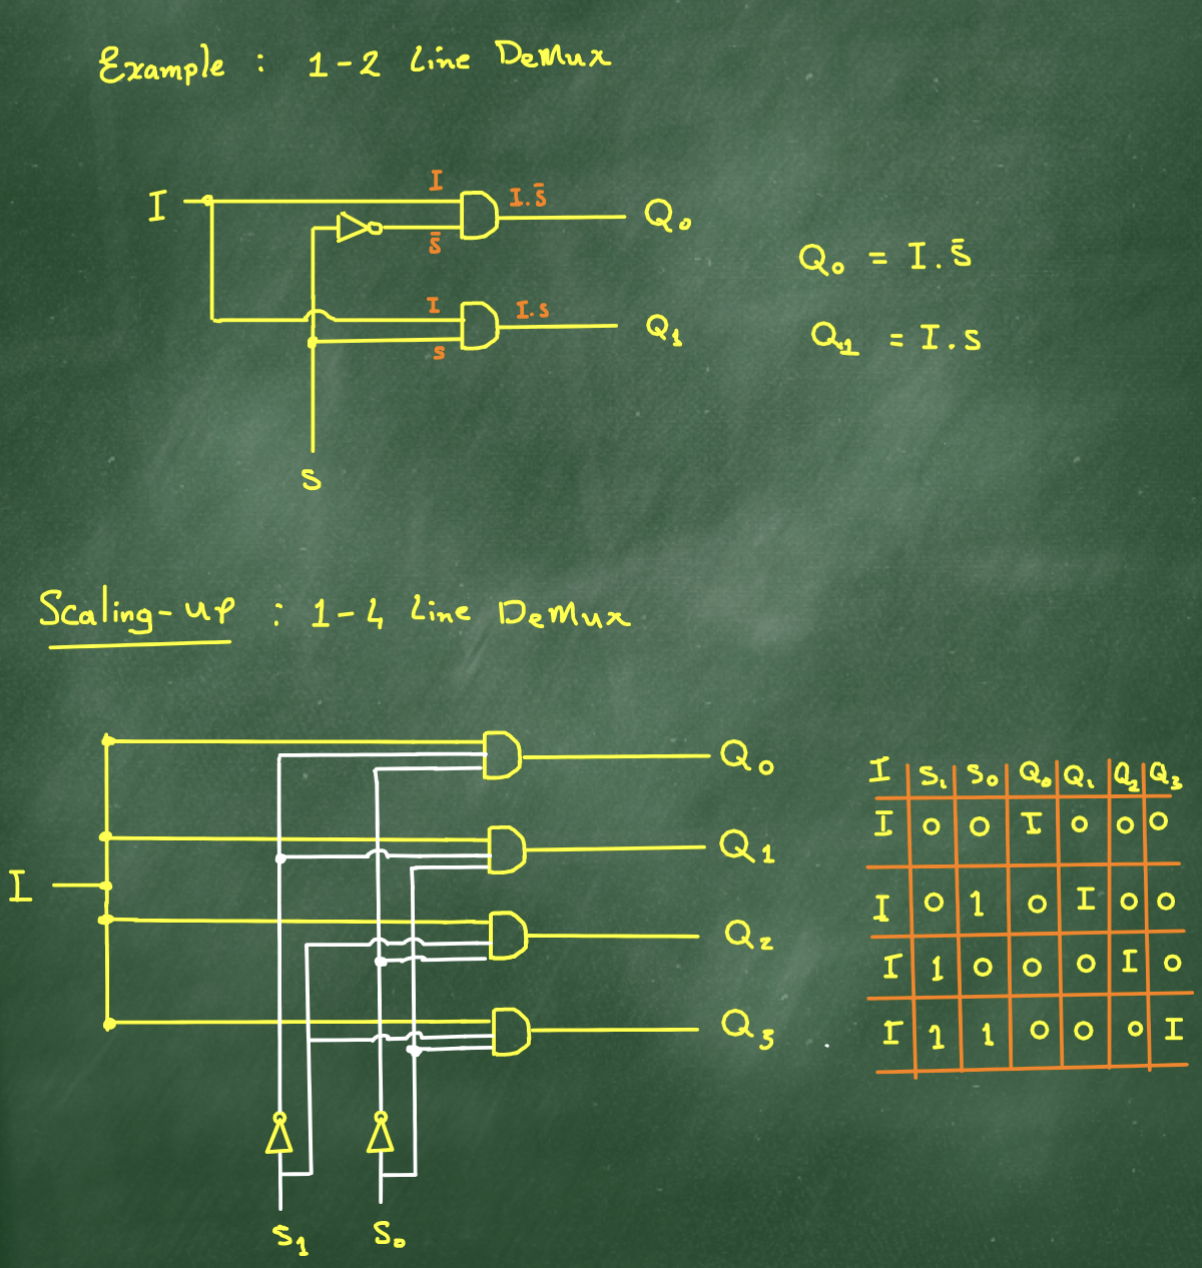 Example : 1-2 Line DeMux
I
I
I.s̄
s̄
Q₀
Q₀ = I.s̄
I
I.s
s
Q₁
Q₁ = I.s
S
Scaling-up : 1-4 Line DeMux
I
Q₀
Q₁
Q₂
Q₃
S₁ S₀
I S₁ S₀ Q₀ Q₁ Q₂ Q₃
I 0 0 I 0 0 0
I 0 1 0 I 0 0
I 1 0 0 0 I 0
I 1 1 0 0 0 I